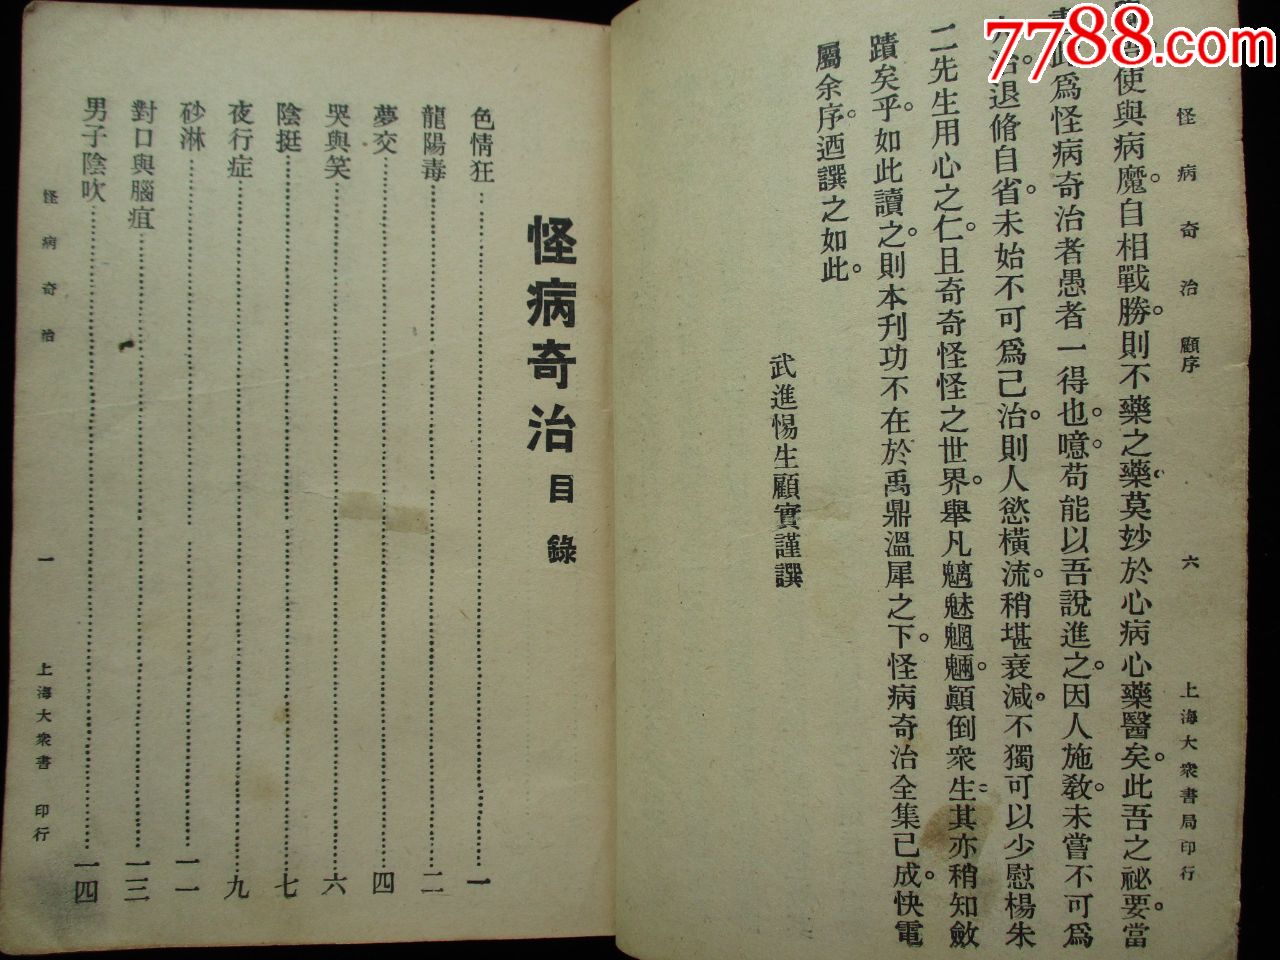 7788.com
怪病奇治 顧序 六 上海大衆書局印行
使與病魔。自相戰勝。則不藥之藥。莫妙於心病心藥醫矣。此吾之祕要。當
此爲怪病奇治者愚者一得也。噫。苟能以吾說進之。因人施教。未嘗不可爲
治。退脩自省。未始不可爲己治。則人慾橫流。稍堪衰減。不獨可以少慰楊朱
二先生用心之仁。且奇奇怪怪之世界。舉凡魑魅魍魎。顛倒衆生。其亦稍知斂
蹟矣乎。如此讀之。則本刋功不在於禹鼎溫犀之下。怪病奇治全集已成。快電
屬余序。迺譔之如此。
武進惕生顧實謹譔
怪病奇治 目錄
色情狂……一
龍陽毒……二
夢交……四
哭與笑……六
陰挺……七
夜行症……九
砂淋……一一
對口與腦疽……一三
男子陰吹……一四
怪病奇治 一 上海大衆書 印行